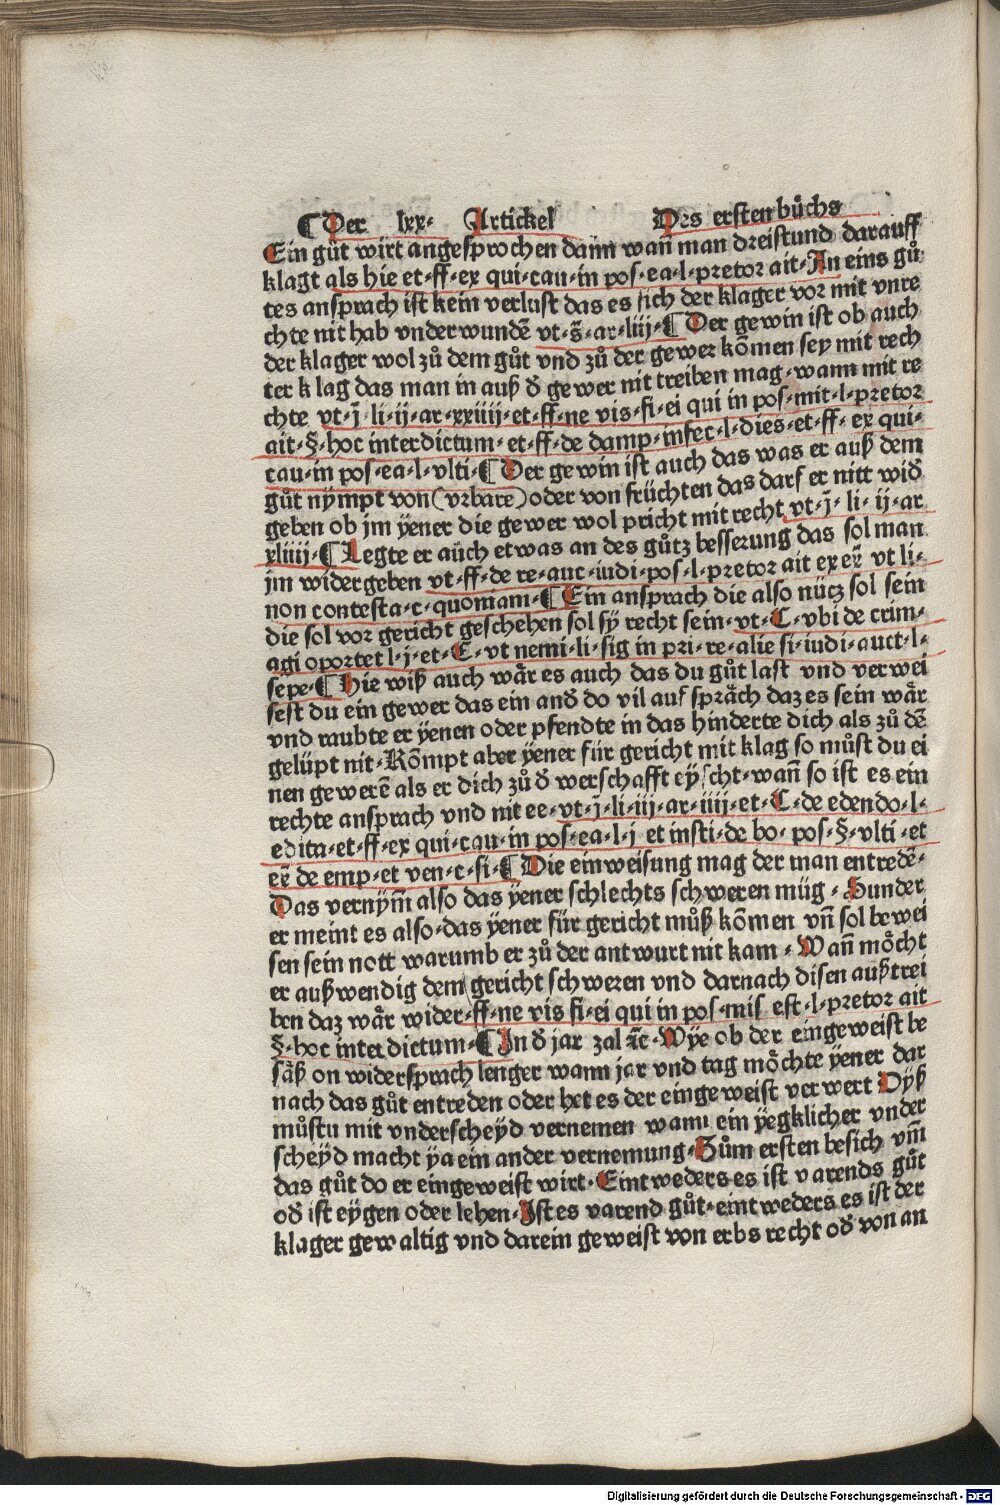 ¶ Der lxx· Artickel Des ersten bůchs
Ein gůt wirt angesprochen dann wañ man dreistund darauff
klagt als hie et·ff·ex qui·cau·in pos·ea·l·pretor ait·In eins gů
tes ansprach ist kein verlust das es sich der klager vor mit vnre
chte nit hab vnderwundẽ vt·s̃·ar·liij·¶ Der gewin ist ob auch
der klager wol zů dem gůt vnd zů der gewer kõmen sey mit rech
ter klag das man in auß d̕ gewer nit treiben mag·wann mit re
chte vt·j̃·li·ij·ar·xxiiij·et·ff·ne vis·fi·ei qui in pos·mit·l·pretor
ait·§·hoc interdictum·et·ff·de damp·infec·l·dies·et·ff·ex qui·
cau·in pos·ea·l·vlti·¶ Der gewin ist auch das was er auß dem
gůt nympt von (vrbare) oder von früchten das darf er nitt wid̕
geben ob jm ÿener die gewer wol pricht mit recht vt·j̃·li·ij·ar
xliiij·¶ Legte er aůch etwas an des gůtz besserung das sol man
jm widergeben vt·ff·de re·auc·iudi·pos·l·pretor ait ex eẽ vt li·
non contesta·c·quoniam·¶ Ein ansprach die also nücz sol sein
die sol vor gericht geschehen sol sÿ recht sein·vt·C·vbi de crim·
agi oportet l·j·et·C·vt nemi·li·sig in pri·re·alie si·iudi·auct·l·
sepe·¶ Hie wiß auch wår es auch das du gůt last vnd verwei
sest du ein gewer das ein and̕ do vil auf språch daz es sein wår
vnd raubte er ÿenen oder pfendte in das hinderte dich als zů dẽ
gelüpt nit·Kõmpt aber ÿener für gericht mit klag so můst du ei
nen gewerẽ als er dich zů d̕ werschafft eÿscht·wañ so ist es ein
rechte ansprach vnd nit ee·vt·j̃·li·iij·ar·iiij·et·C·de edendo·l·
edita·et·ff·ex qui·cau·in pos·ea·l·j et insti·de bo·pos·§·vlti·et
eẽ de emp·et ven·c·si·¶ Die einweisung mag der man entredẽ·
Das vernÿm̃ also das ÿener schlechts schweren müg·Sunder
er meint es also·das ÿener für gericht můß kõmen vñ sol bewei
sen sein nott warumb er zů der antwurt nit kam·Wañ möcht
er außwendig dem gericht schweren vnd darnach disen außtrei
ben daz wår wider·ff·ne vis fi·ei qui in pos·mis est·l·pretor ait
§·hoc interdictum·¶ In d̕ jar zal ꝛc̃·Wÿe ob der eingeweist be
såß on widersprach lenger wann jar vnd tag möchte ÿener dar
nach das gůt entreden oder het es der eingeweist verwert Dÿß
můstu mit vnderscheÿd vernemen wann ein ÿegklicher vnder
scheÿd macht ÿa ein ander vernemung·Zům ersten besich vm̃
das gůt do er eingeweist wirt·Eintweders es ist varends gůt
od̕ ist eÿgen oder lehen·Ist es varend gůt·eintweders es ist der
klager gewaltig vnd darein geweist von erbs recht od̕ von an
Digitalisierung gefördert durch die Deutsche Forschungsgemeinschaft - DFG